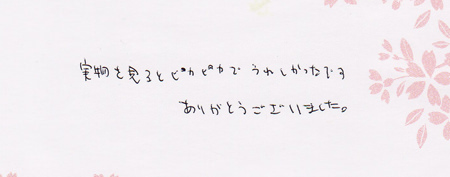 実物を見るとピカピカでうれしかったです
ありがとうございました。